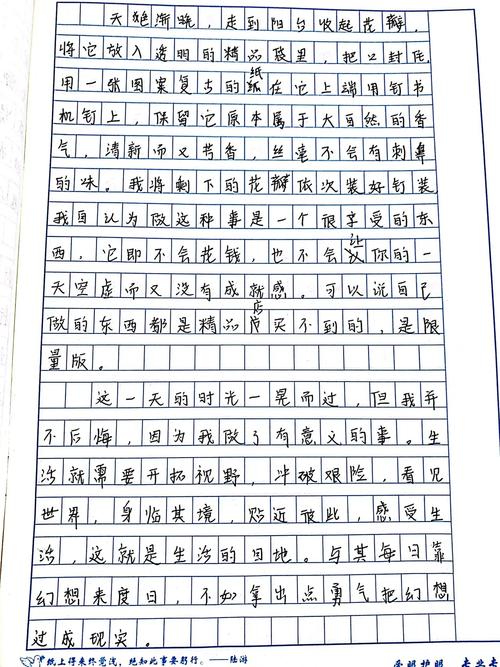 天她渐晚，走到阳台收起花瓣，
将它放入透明的精品袋里，把口封住，
用一张图案复古的纸在它上端用钉书
机钉上，保留它原本属于大自然的香
气，清新而又芳香，丝毫不会有刺鼻
的味。我将剩下的花瓣依次装好钉装
我自认为做这种事是一个很享受的东
西，它即不会花钱，也不会让你的一
天空虚而又没有成就感。可以说自己
做的东西都是精品店买不到的，是限
量版。
这一天的时光一晃而过，但我并
不后悔，因为我做了有意义的事。生
活就需要开拓视野，冲破艰险，看见
世界，身临其境，贴近彼此，感受生
活，这就是生活的目地。与其每日靠
幻想来度日，不如拿出点勇气把幻想
过成现实。
纸上得来终觉浅，绝知此事要躬行。——陆游